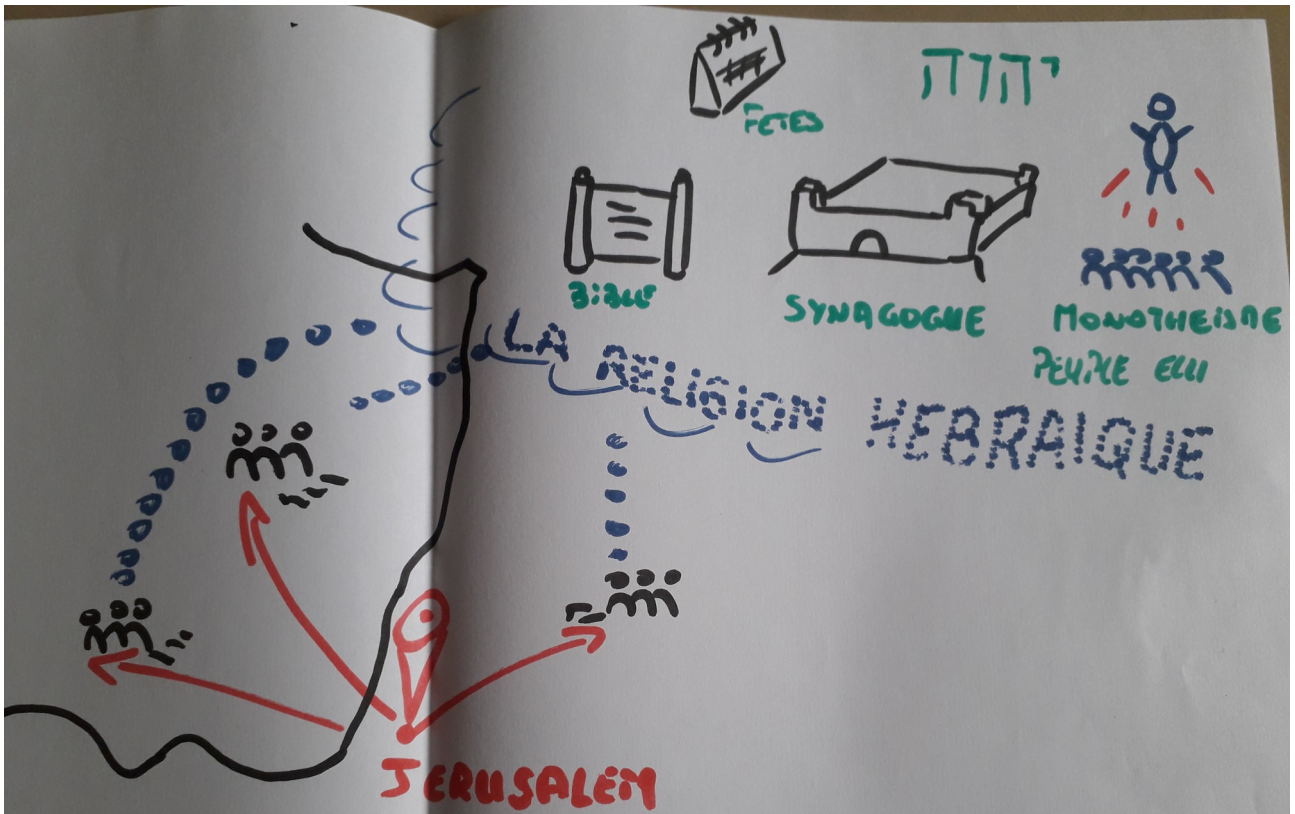 יהוה
FETES
BIBLE
SYNAGOGUE
MONOTHEISME
PEUPLE ELU
LA RELIGION HEBRAIQUE
JERUSALEM